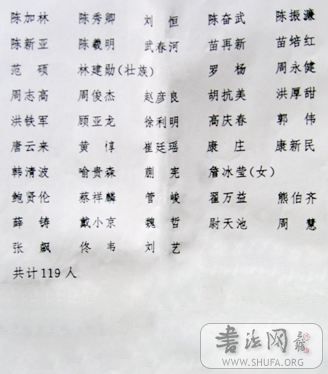 陈加林 陈秀卿 刘恒 陈奋武 陈振濂
陈新亚 陈羲明 武春河 苗再新 苗培红
范硕 林建勋(壮族) 罗杨 周永健
周志高 周俊杰 赵彦良 胡抗美 洪厚甜
洪铁军 顾亚龙 徐利明 高庆春 郭伟
唐云来 黄惇 崔廷瑶 康庄 康新民
韩清波 喻贵森 宪 詹冰莹(女)
鲍贤伦 蔡祥麟 管峻 翟万益 熊伯齐
薛铸 戴小京 魏哲 尉天池 周慧
张飙 佟韦 刘艺
共计119人
书法网
WWW.SHUFA.ORG